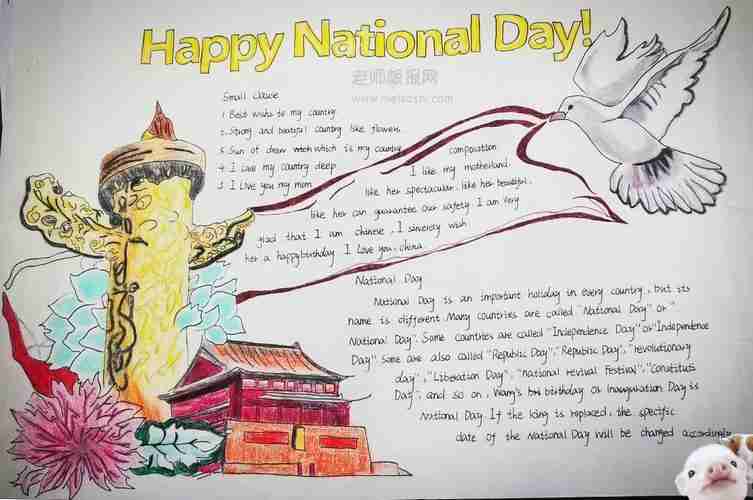 Happy National Day!
老师板报网
Small clause
1. Best wishs to my country
2. Strong and beautiful country like flowers.
3. Sun of draw which is my country
4 I Love my country deep
5 I Love you my mom
composition
I like my motherland.
like her spectacular, like her beautiful,
like her can guarantee our safety. I am very
glad that I am chinese, I sincerely wish
her a happy birthday. I Love you, china.
National Day
National Day is an important holiday in every country, but its
name is different. Many countries are called "National Day" or "
National Day". Some countries are called "Independence Day" or "Independence
Day". Some are also called "Republic Day", "Republic Day", "revolutionary
day", "Liberation Day", "national revival Festival", "constituti
Day", and so on, Wang's birthday or Inauguration Day is
National Day. If the king is replaced, the specific
date of the National Day will be changed accordingly